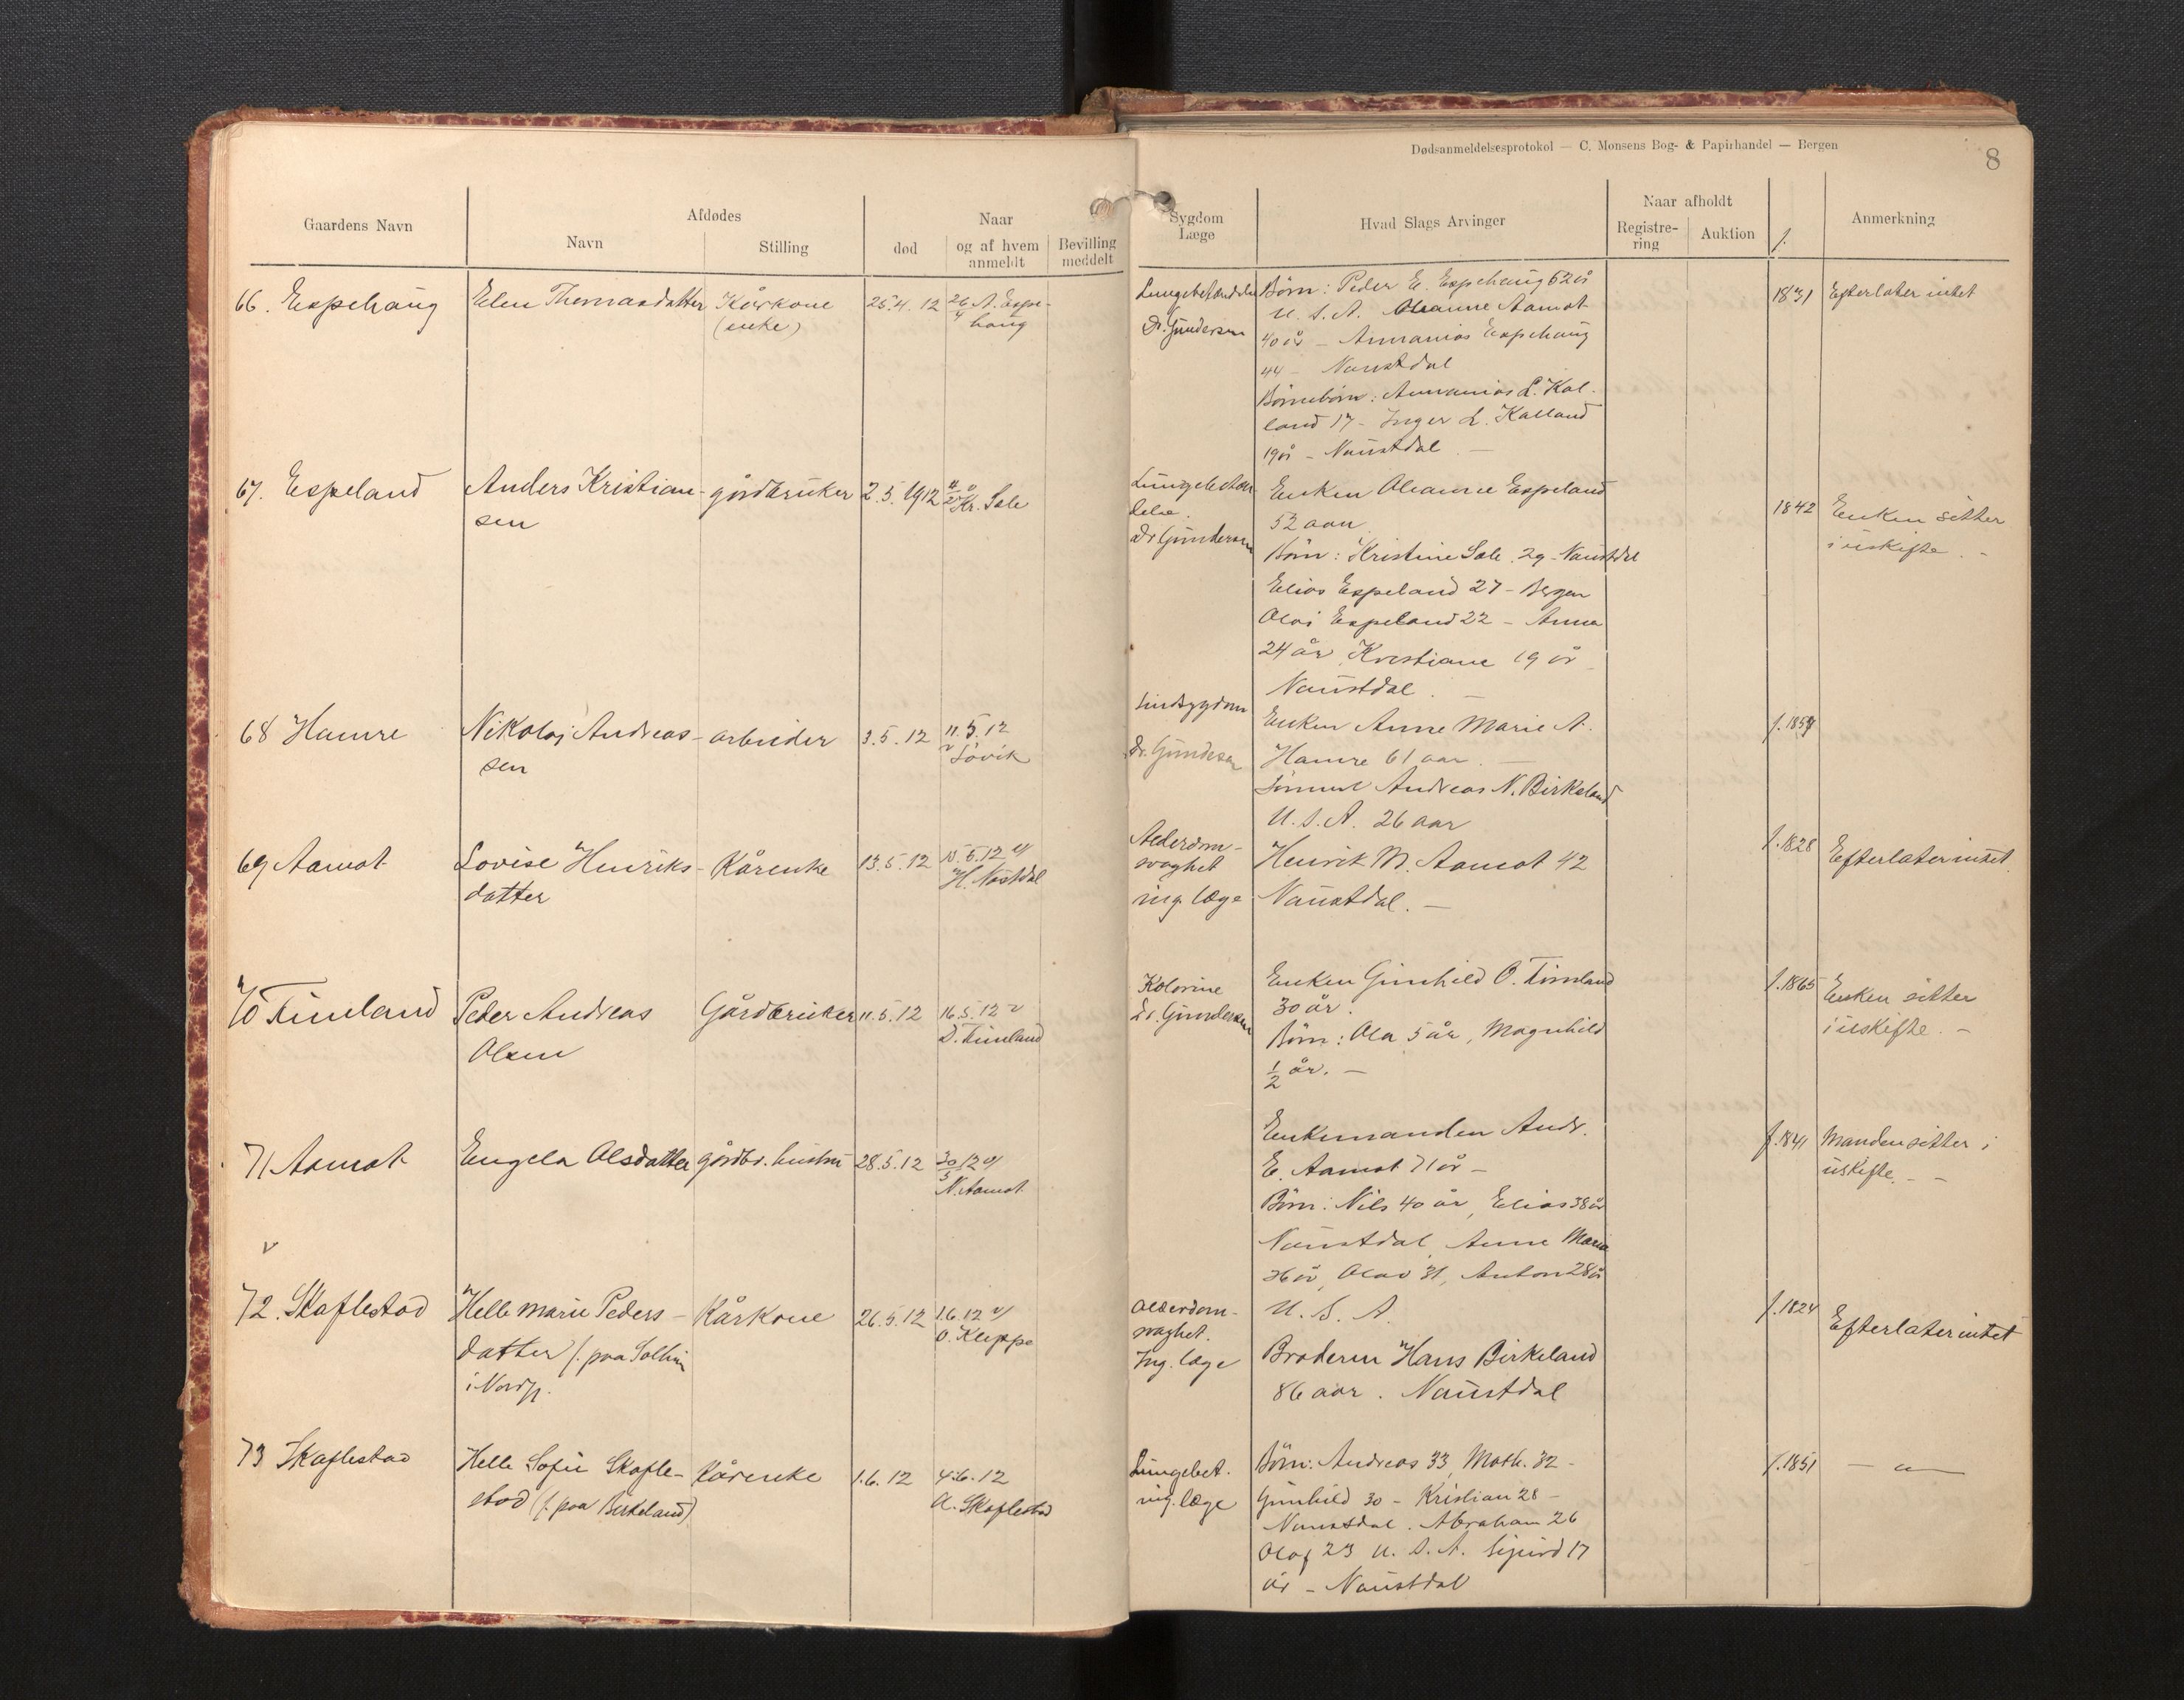 Dødsanmeldelsesprotokol — C. Monsens Bog- & Papirhandel — Bergen
8
Gaardens Navn
Afdødes
Navn
Stilling
Naar
død
og af hvem anmeldt
Bevilling meddelt
Sygdom
Læge
Hvad Slags Arvinger
Naar afholdt
Registre-
ring
Auktion
f.
Anmerkning
66. Espehaug
Elen Thomasdatter
Kårkone
(enke)
25.4.12
26/4 A. Espe-
haug
Lungebetændelse
Dr. Gundersen
Børn: Peder E. Espehaug 52 år
U.S.A. Oleanne Aamot
40 år - Annanias Espehaug
44 - Naustdal
Børnebørn: Annanias L. Kal-
land 17 - Inger L. Kalland
19 år - Naustdal
1831
Efterlater intet
67. Espeland
Anders Kristian-
sen
gårdbruker
2.5.1912
Kr. Sale
Lungebetæn
delse.
Dr Gundersen
Enken Oleanne Espeland
52 aar
Børn: Kristine Sale 29 - Naustdal
Elias Espeland 27 - Bergen
Olai Espeland 22 - Anna
24 år Kristiane 19 år
Naustdal. -
1842
Enken sitter
i uskifte. -
68 Hamre
Nikolai Andreas-
sen
arbeider
3.5.12
11.5.12
v Løvik
Sindsygdom
Dr. Gundersen
Enken Anne Marie N.
Hamre 61 aar. -
Sønnul Andreas N. Birkeland
U.S.A. 26 aar
69 Aamot
Lovise Henriks-
datter
Kårenke
13.5.12
15.5.12 v/
H. Nastdal
Alderdom-
svaghet
ing. læge
Henrik M. Aamot 42
Naustdal. -
f.1828
Efterlater intet
70 Timland
Peder Andreas
Olsen
Gårdbruker
11.5.12
16.5.12 v
D. Timland
Dr. Gundersen
Enken Gunhild O. Timland
30 år.
Børn: Ola 5 år, Magnhild
1/2 år. -
f.1865
Enken sitter
i uskifte. -
71 Aamot
Engela Olsdatter
gårdbr. hustru
28.5.12
30/5 12 v/
N. Aamot
Enkemanden Andr.
E. Aamot 71 år -
Børn: Nils 40 år, Elias 38 år
Naustdal, Anne Marie
36 år, Olav 31, Anton 28 år
U.S.A.
f.1841
Manden sitter i
uskifte. - -
v
72. Skaflestad
Helle Marie Peders-
datter f. paa Solheim
i Vordp.
Kårkone
26.5.12
1.6.12 v/
O. Kleppe
Alderdom-
svaghet.
Ing. læge
Broderen Hans Birkeland
86 aar. Naustdal
f.1824
Efterlater intet
73 Skaflestad
Helle Sofie Skafle-
stad (f. paa Birkeland)
Kårenke
1.6.12
4.6.12
A. Skaflestad
Lungebet.
ing. læge
Børn: Andreas 33, Math. 32 -
Gunhild 30 - Kristian 28 -
Naustdal. Abraham 26
Olaf 23 U.S.A. Sigurd 17
år - Naustdal
f.1851
— „ —